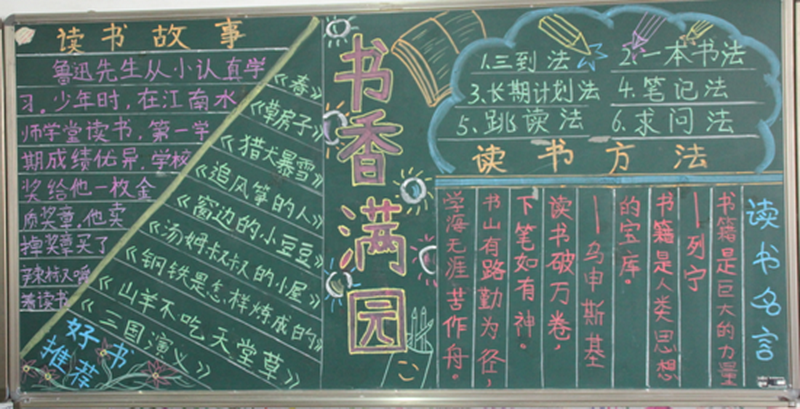 读书故事
鲁迅先生从小认真学
习。少年时，在江南水
师学堂读书，第一学
期成绩优异，学校
奖给他一枚金
质奖章，他卖
掉奖章买了
辣椒
着读书
《春》
《草房子》
《猎犬暴雪》
《追风筝的人》
《窗边的小豆豆》
《汤姆叔叔的小屋》
《钢铁是怎样炼成的》
《山羊不吃天堂草》
《三国演义》
好书
推荐
书香满园
1.三到法
2.一本书法
3.长期计划法
4.笔记法
5.跳读法
6.求问法
读书方法
读书名言
书籍是巨大的力量
—列宁
书籍是人类思想
的宝库。
—乌申斯基
读书破万卷，
下笔如有神。
书山有路勤为径，
学海无涯苦作舟。